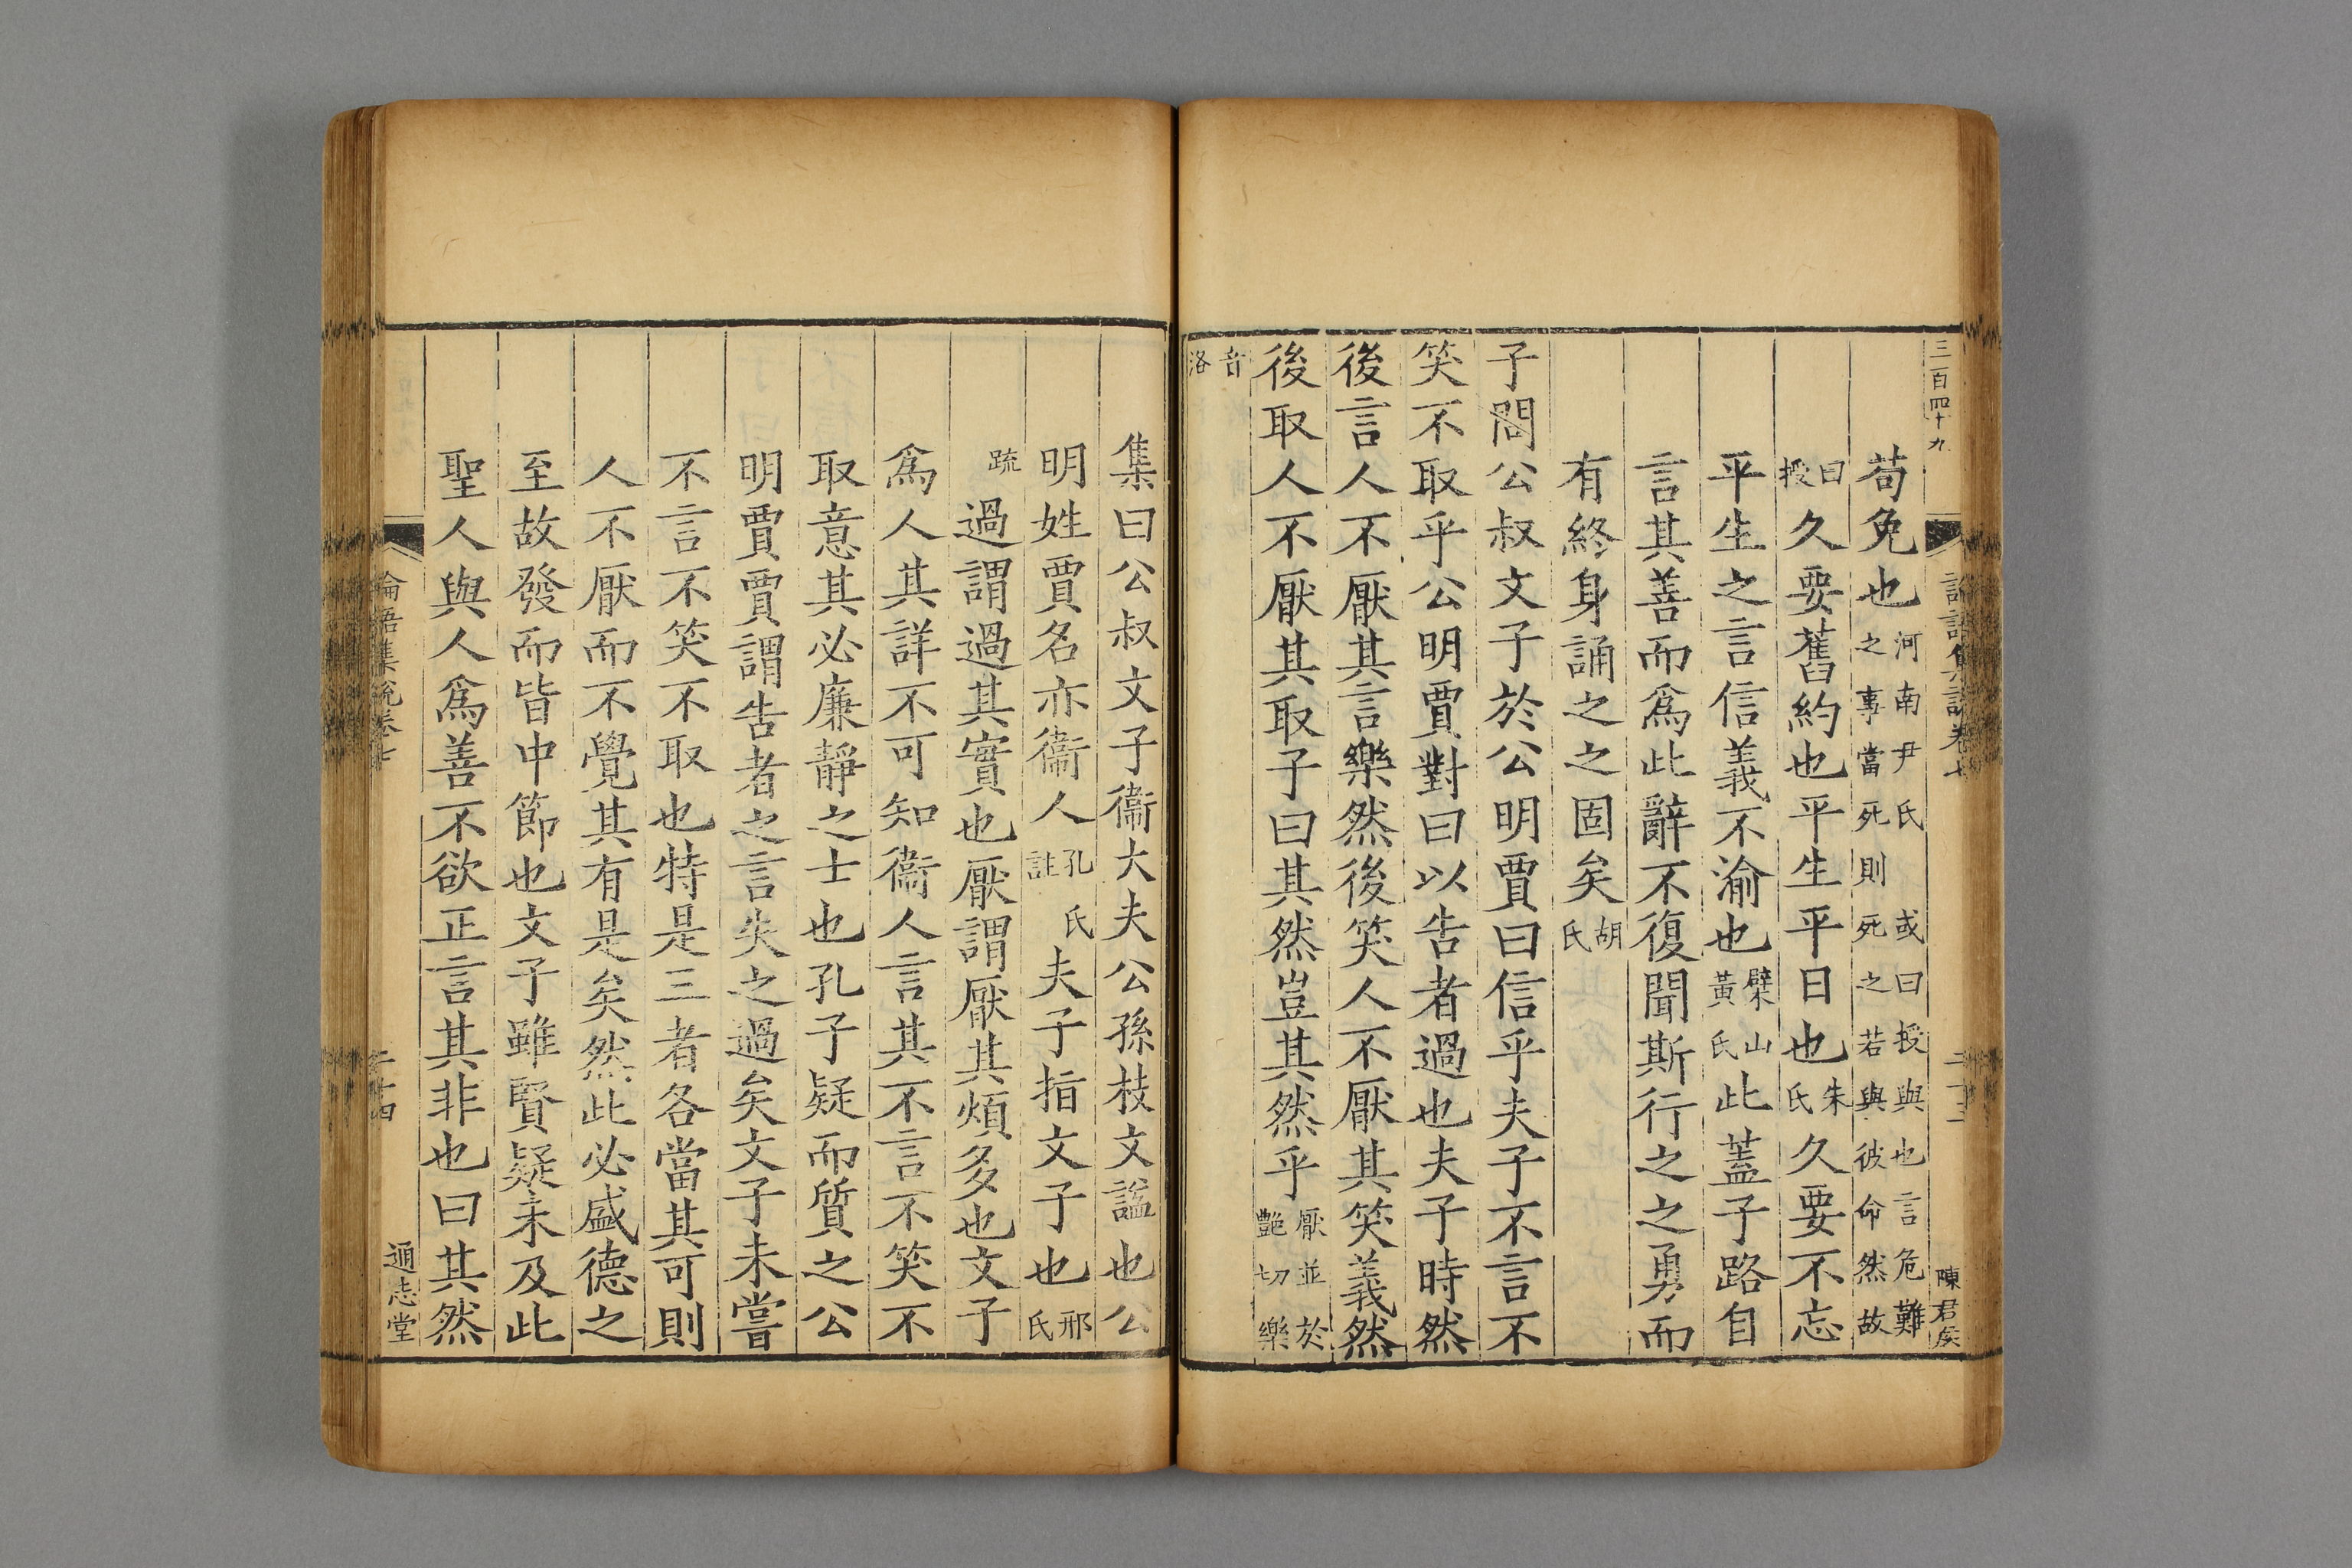 三百四十九
陳君矦
苟免也河南尹氏 或曰授與也言危難之事當死則死之若與彼命然故
曰授久要舊約也平生平日也朱氏久要不忘
平生之言信義不渝也檗山黃氏此蓋子路自
言其善而爲此辭不復聞斯行之之勇而
有終身誦之之固矣胡氏
子問公叔文子於公明賈曰信乎夫子不言不
笑不取乎公明賈對曰以告者過也夫子時然
後言人不厭其言樂然後笑人不厭其笑義然
後取人不厭其取子曰其然豈其然乎厭並於艷切樂
音洛
集曰公叔文子衞大夫公孫枝文諡也公
明姓賈名亦衞人孔氏註夫子指文子也邢氏
疏過謂過其實也厭謂厭其煩多也文子
爲人其詳不可知衞人言其不言不笑不
取意其必廉靜之士也孔子疑而質之公
明賈賈謂告者之言失之過矣文子未嘗
不言不笑不取也特是三者各當其可則
人不厭而不覺其有是矣然此必盛德之
至故發而皆中節也文子雖賢疑未及此
聖人與人爲善不欲正言其非也曰其然
論語集說卷七
二十四
通志堂